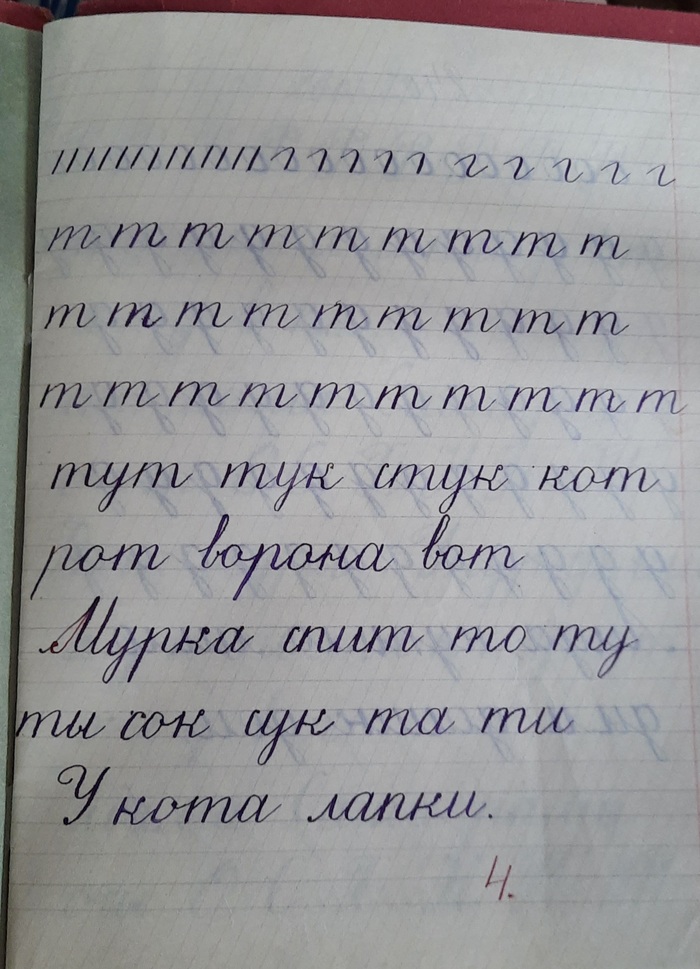 т т т т т т т т т
т т т т т т т т т
т т т т т т т т т т
тут тук стук кот
рот ворона вот
Мурка спит то ту
ты сок сук та ти
У кота лапки.
4.